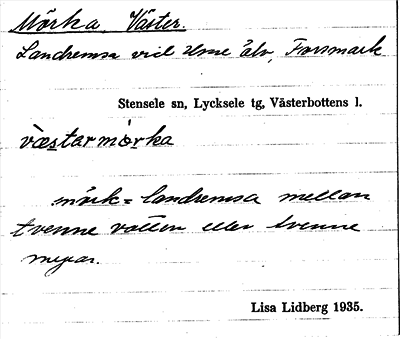 Mörka, Väster.
Landremsa vid Ume älv, Forsmark
Stensele sn, Lycksele tg, Västerbottens l.
væstarmörka
mörk = landremsa mellan
tvenne vatten eller tvenne
myrar.
Lisa Lidberg 1935.